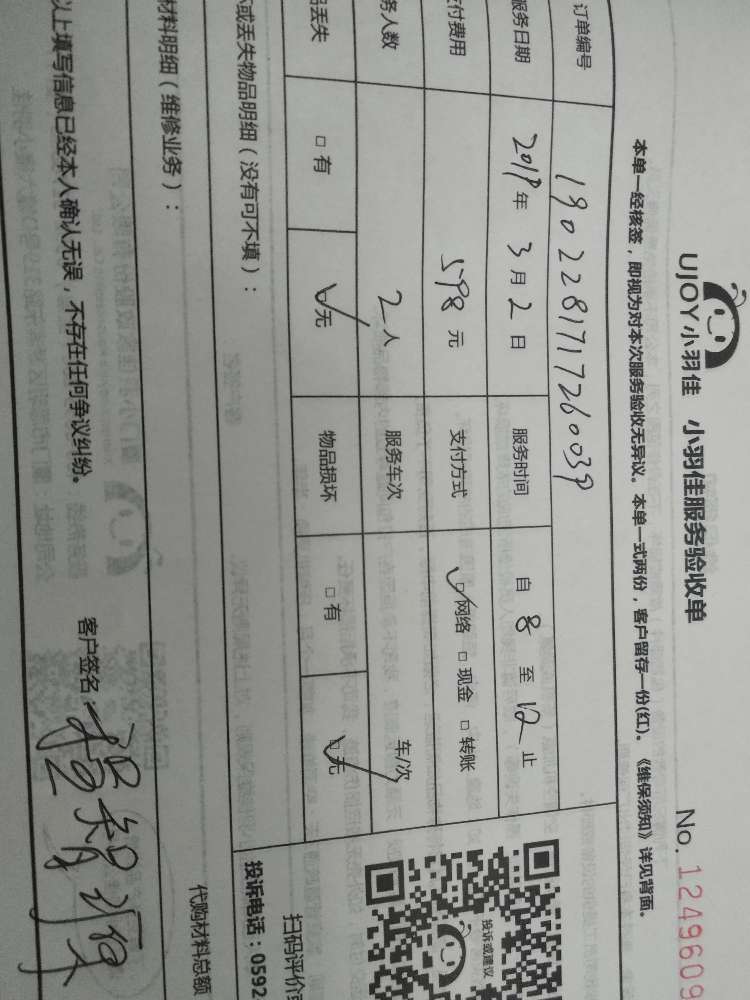 UJOY小羽佳 小羽佳服务验收单 No. 1249609
本单一经核签，即视为对本次服务验收无异议。本单一式两份，客户留存一份(红)。《维保须知》详见背面。
订单编号 1902281717260039
服务日期 2019年 3月 2日 服务时间 自 8 至 12 止
支付费用 598 元 支付方式 ☑网络 □现金 □转账
务人数 2人 服务车次 车/次
品丢失 □有 ☑无 物品损坏 □有 ☑无
投诉或建议
扫码评价
坏或丢失物品明细（没有可不填）： 投诉电话：0592
材料明细（维修业务）： 代购材料总额
以上填写信息已经本人确认无误，不存在任何争议纠纷。 客户签名